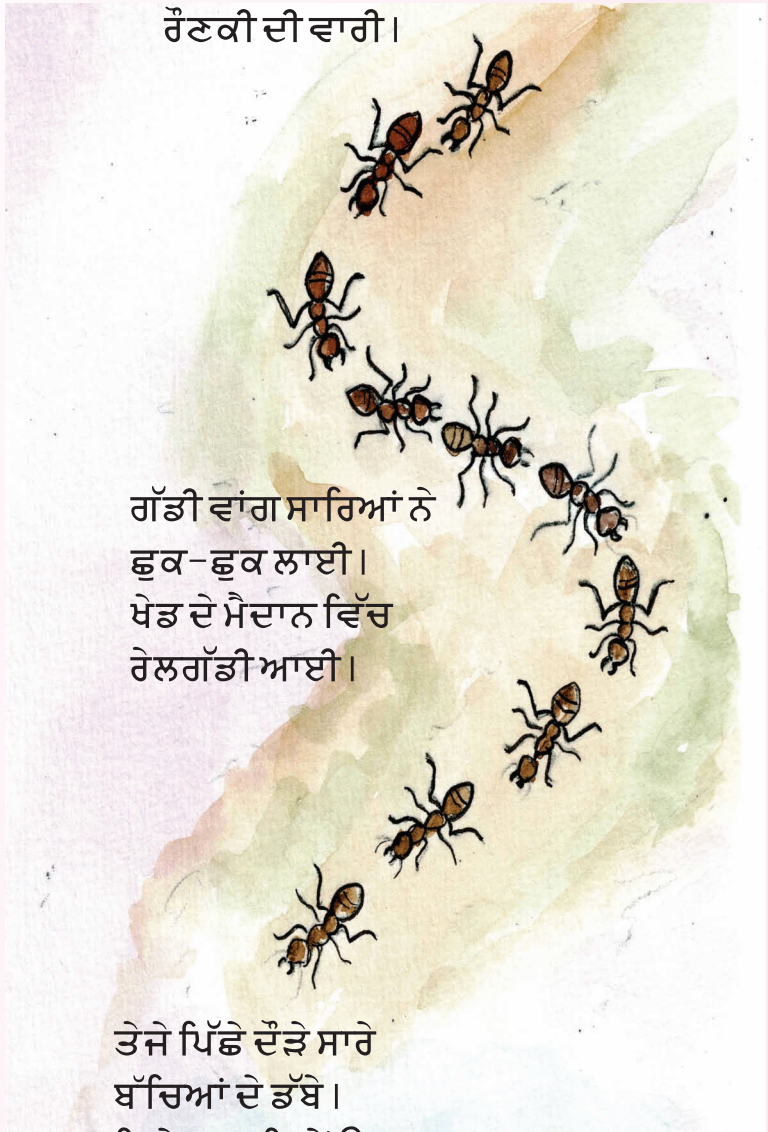 ਰੌਣਕੀ ਦੀ ਵਾਰੀ।
ਗੱਡੀ ਵਾਂਗ ਸਾਰਿਆਂ ਨੇ
ਛੁਕ-ਛੁਕ ਲਾਈ।
ਖੇਡ ਦੇ ਮੈਦਾਨ ਵਿੱਚ
ਰੇਲਗੱਡੀ ਆਈ।
ਤੇਜੇ ਪਿੱਛੇ ਦੌੜੇ ਸਾਰੇ
ਬੱਚਿਆਂ ਦੇ ਡੱਬੇ।